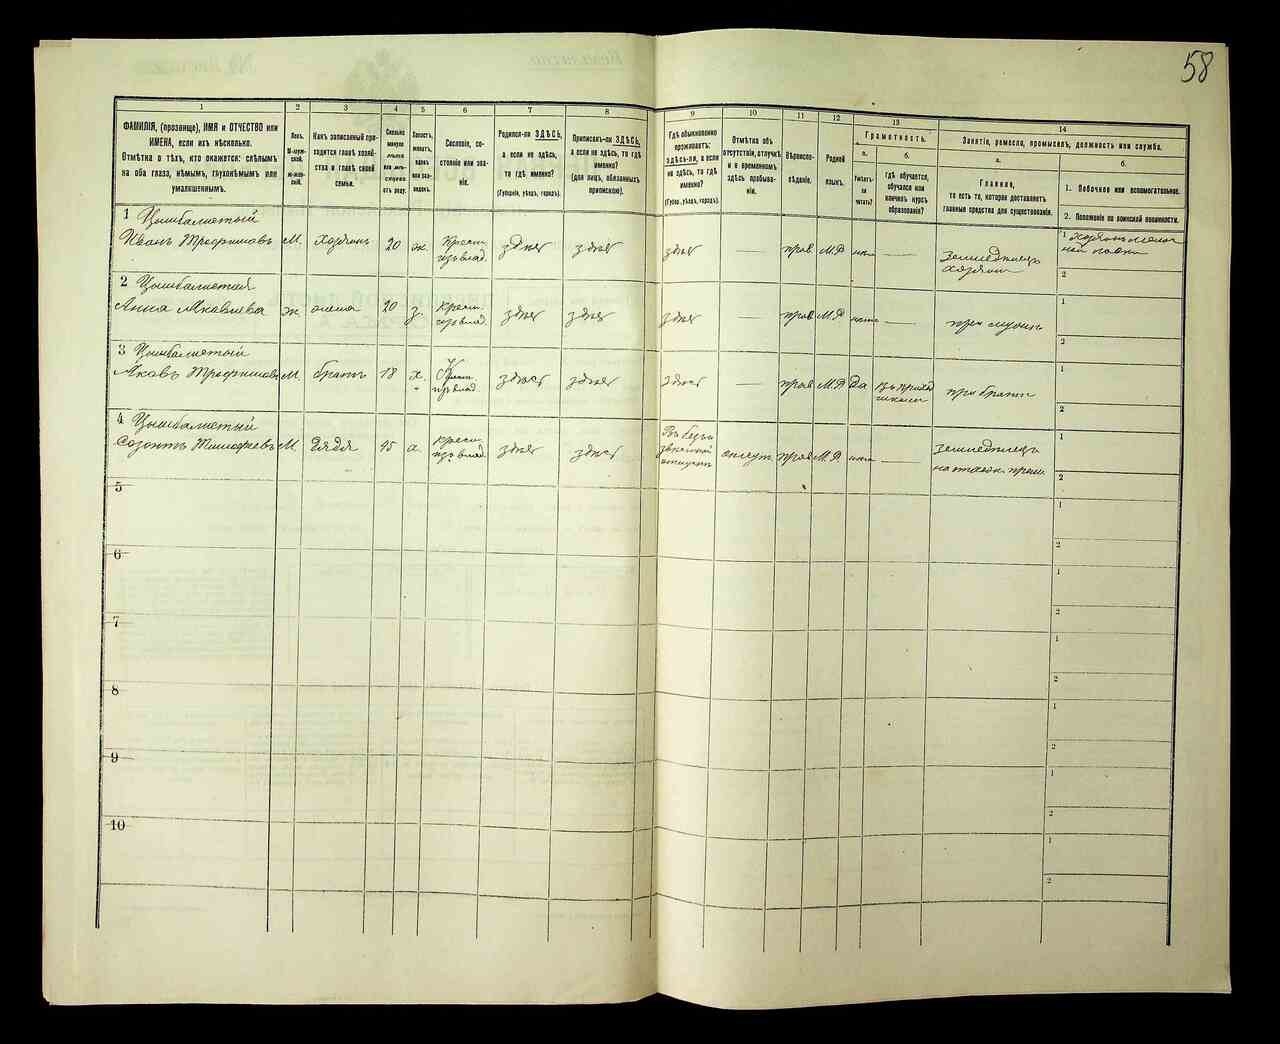 58
1
2
3
4
5
6
7
8
9
10
11
12
13
14
ФАМИЛІЯ, (прозвище), ИМЯ и ОТЧЕСТВО или
ИМЕНА, если ихъ нѣсколько.
Отмѣтка о тѣхъ, кто окажется: слѣпымъ
на оба глаза, нѣмымъ, глухонѣмымъ или
умалишеннымъ.
Полъ.
М-муж-
ской.
Ж-жен-
скій.
Какъ записанный при-
ходится главѣ хозяй-
ства и главѣ своей
семьи.
Сколько
минуло
лѣтъ
или мѣ-
сяцевъ
отъ роду.
Холостъ,
женатъ,
вдовъ
или раз-
веденъ.
Сословіе, со-
стояніе или зва-
ніе.
Родился-ли ЗДѢСЬ,
а если не здѣсь,
то гдѣ именно?
(Губернія, уѣздъ, городъ).
Приписанъ-ли ЗДѢСЬ,
а если не здѣсь, то гдѣ
именно?
(для лицъ, обязанныхъ
припискою).
Гдѣ обыкновенно
проживаетъ:
здѣсь-ли, а если
не здѣсь, то гдѣ
именно?
(Губер., уѣздъ, городъ).
Отмѣтка объ
отсутствіи, отлучкѣ
и о временномъ
здѣсь пребыва-
ніи.
Вѣроиспо-
вѣданіе.
Родной
языкъ.
Грамотность.
а.
Умѣетъ-
ли
читать?
б.
гдѣ обучается,
обучался или
кончилъ курсъ
образованія?
Занятіе, ремесло, промыселъ, должность или служба.
а.
Главное,
то есть то, которое доставляетъ
главныя средства для существованія.
б.
1. Побочное или вспомогательное.
2. Положеніе по воинской повинности.
1 Цымбалистый
Иванъ Трофимовъ М. хозяинъ 20 ж. Крест. изъ влад. здѣсь здѣсь здѣсь — прав. М.Р. — земледѣлецъ хозяинъ
1 2
2 Цымбалистая
Анна Яковлева ж. жена 20 з. Крест. изъ влад. здѣсь здѣсь здѣсь — прав. М.Р. — при мужѣ
1
2
3 Цымбалистый
Яковъ Трофимовъ М. братъ 18 х. Крест. изъ влад. здѣсь здѣсь здѣсь — прав. М.Р. да школѣ при братѣ
1
2
4 Цымбалистый
Созонтъ Тимофеевъ М. дядя 45 крест. изъ влад. здѣсь здѣсь прав. М.Р. — земледѣлецъ
1
2
5
1
2
6
1
2
7
1
2
8
1
2
9
1
2
10
1
2